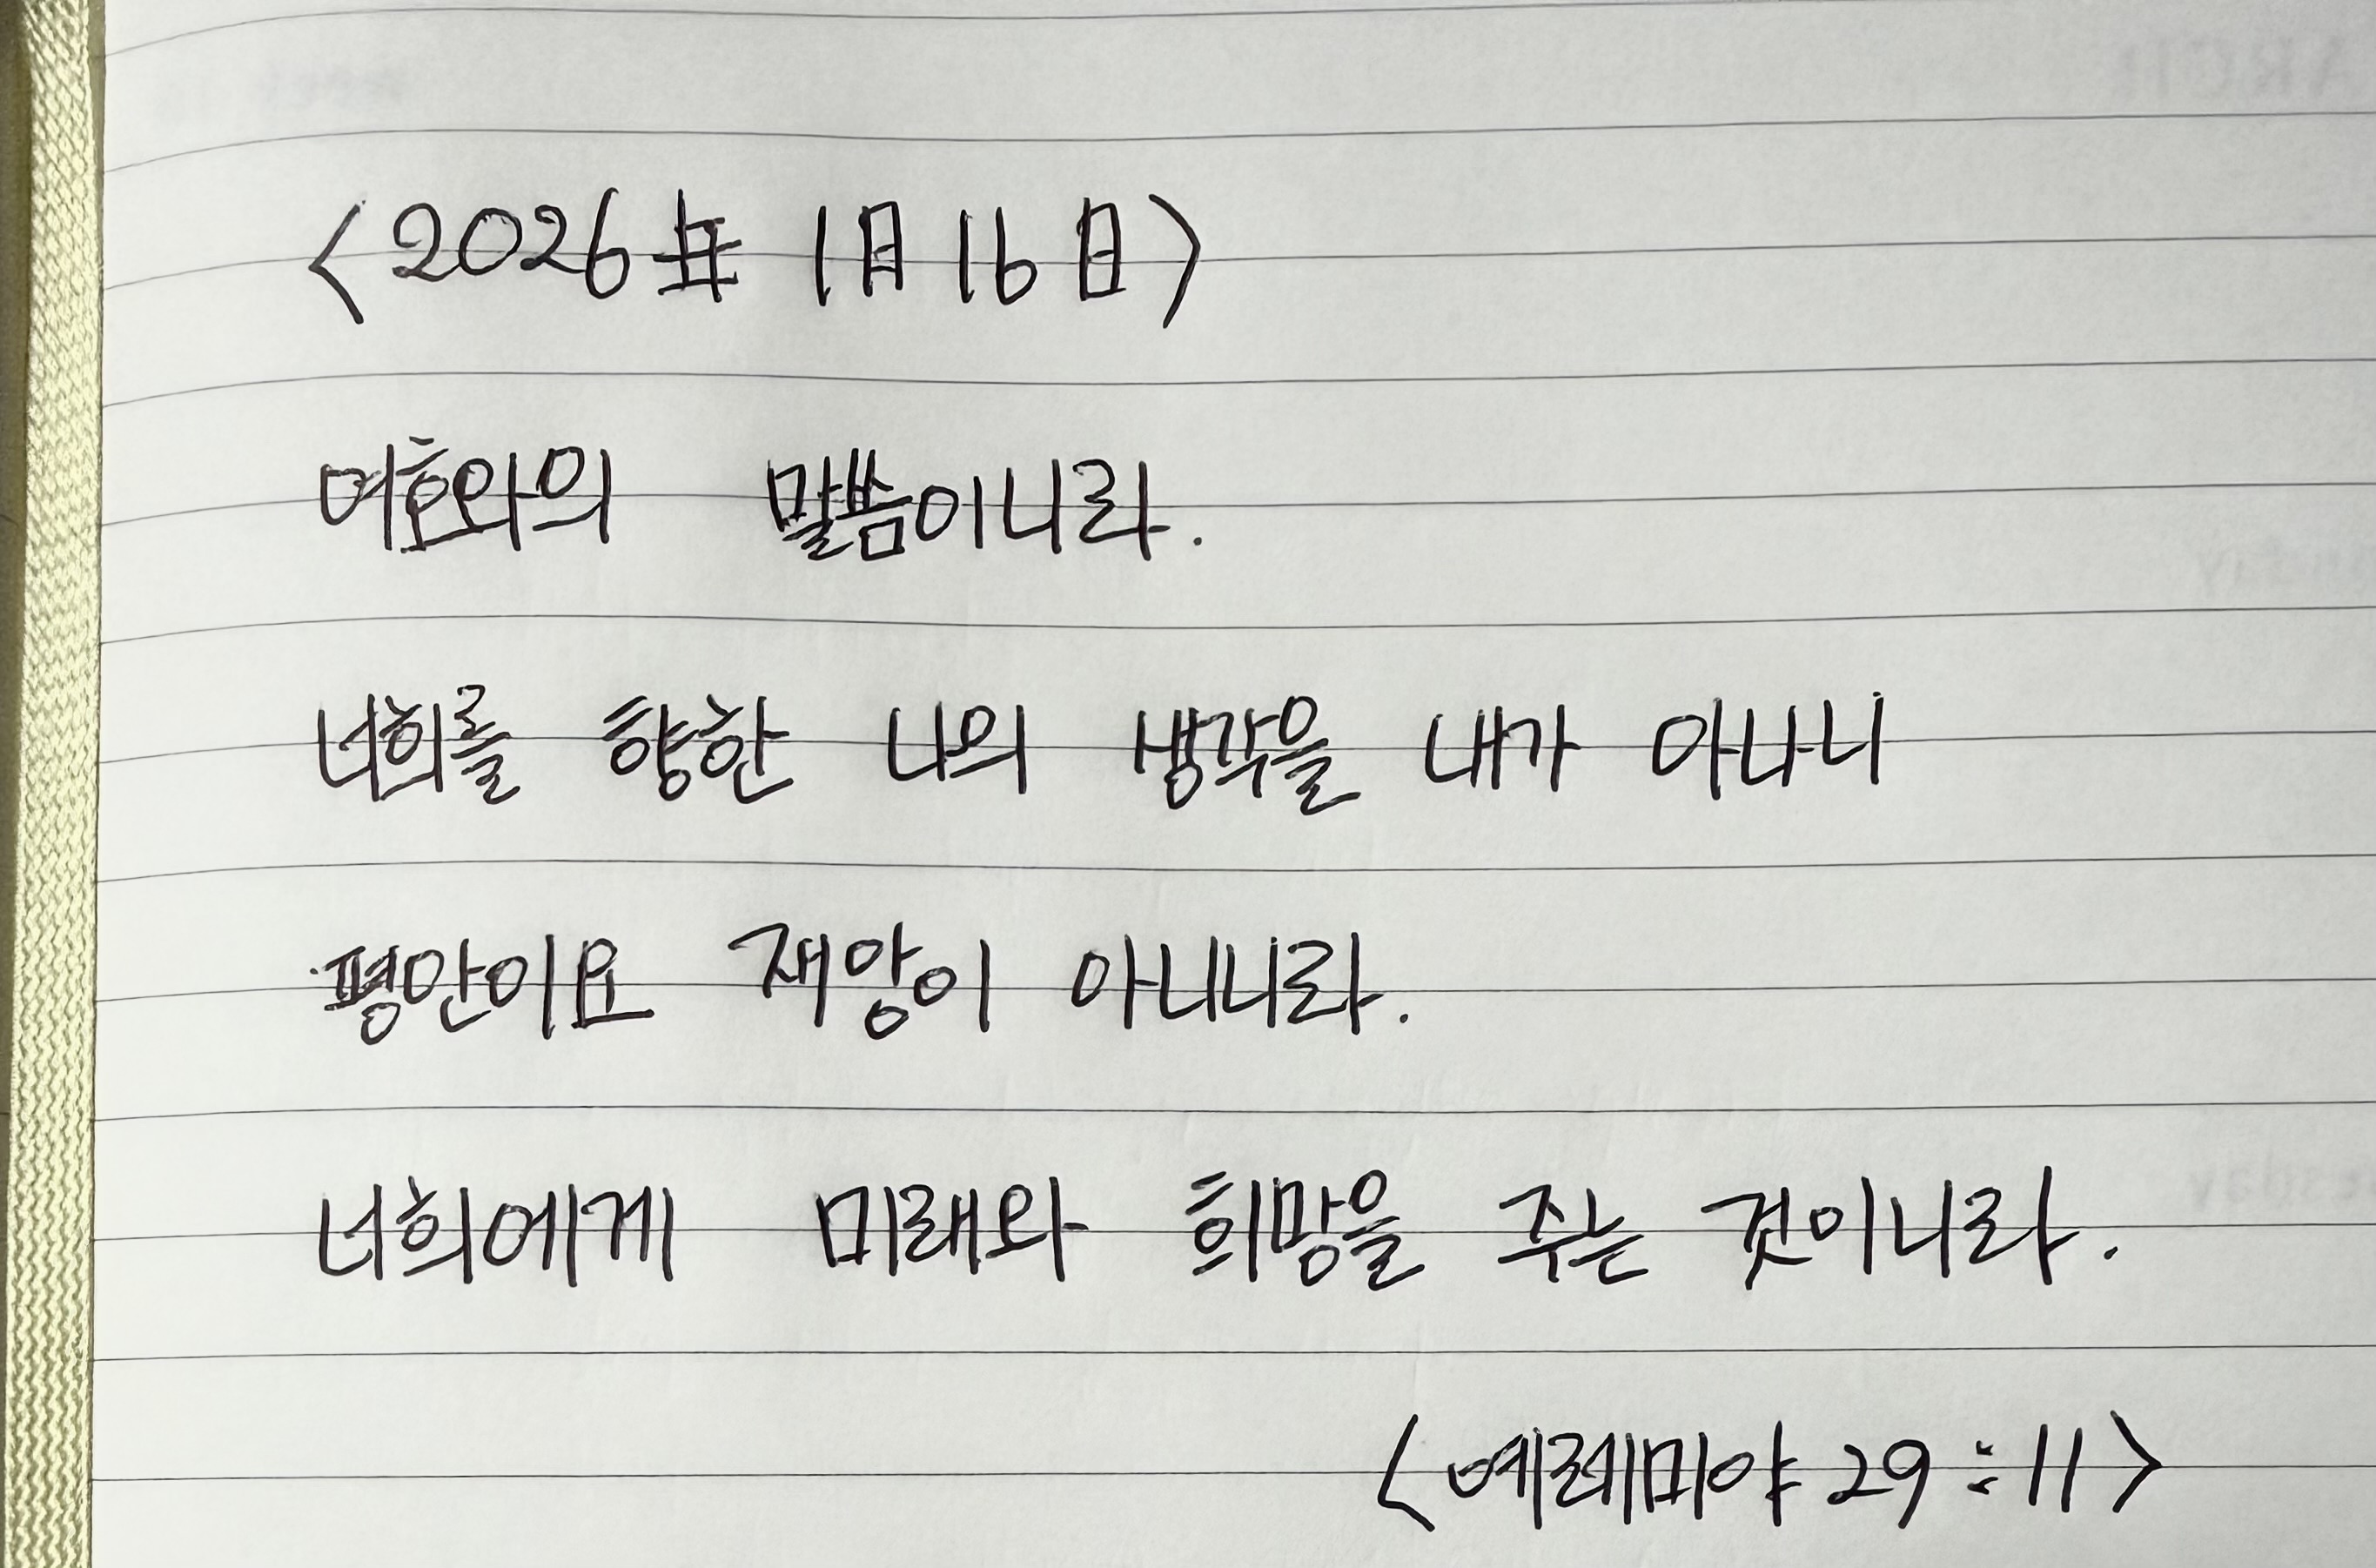 <2026年 1月 16日>
여호와의 말씀이니라.
너희를 향한 나의 생각을 내가 아나니
평안이요 재앙이 아니니라.
너희에게 미래와 희망을 주는 것이니라.
<예레미야 29:11>